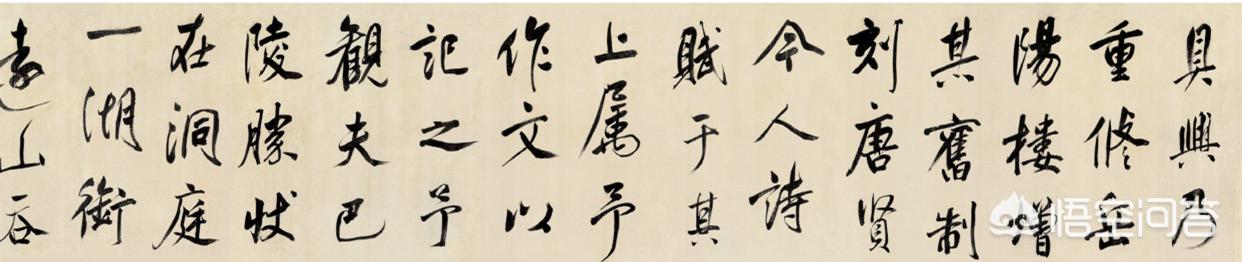 具興乃
重修岳
陽樓增
其舊制
刻唐賢
今人詩
賦于其
上属予
作文以
記之予
觀夫巴
陵勝狀
在洞庭
一湖銜
遠山吞
悟空问答